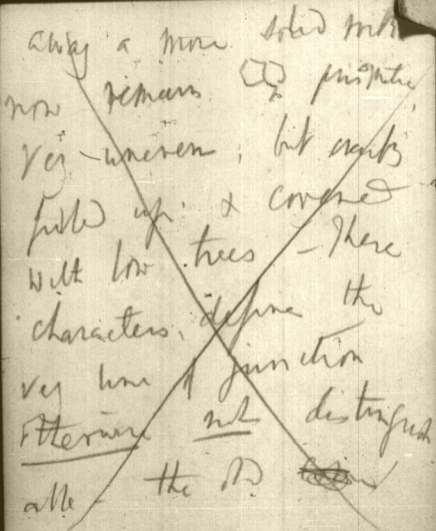 a more solid
now remains
very uneven, but
filled up: & covered
with low trees — These
characters, define the
very line of junction
otherwise not distinguish
able - the old